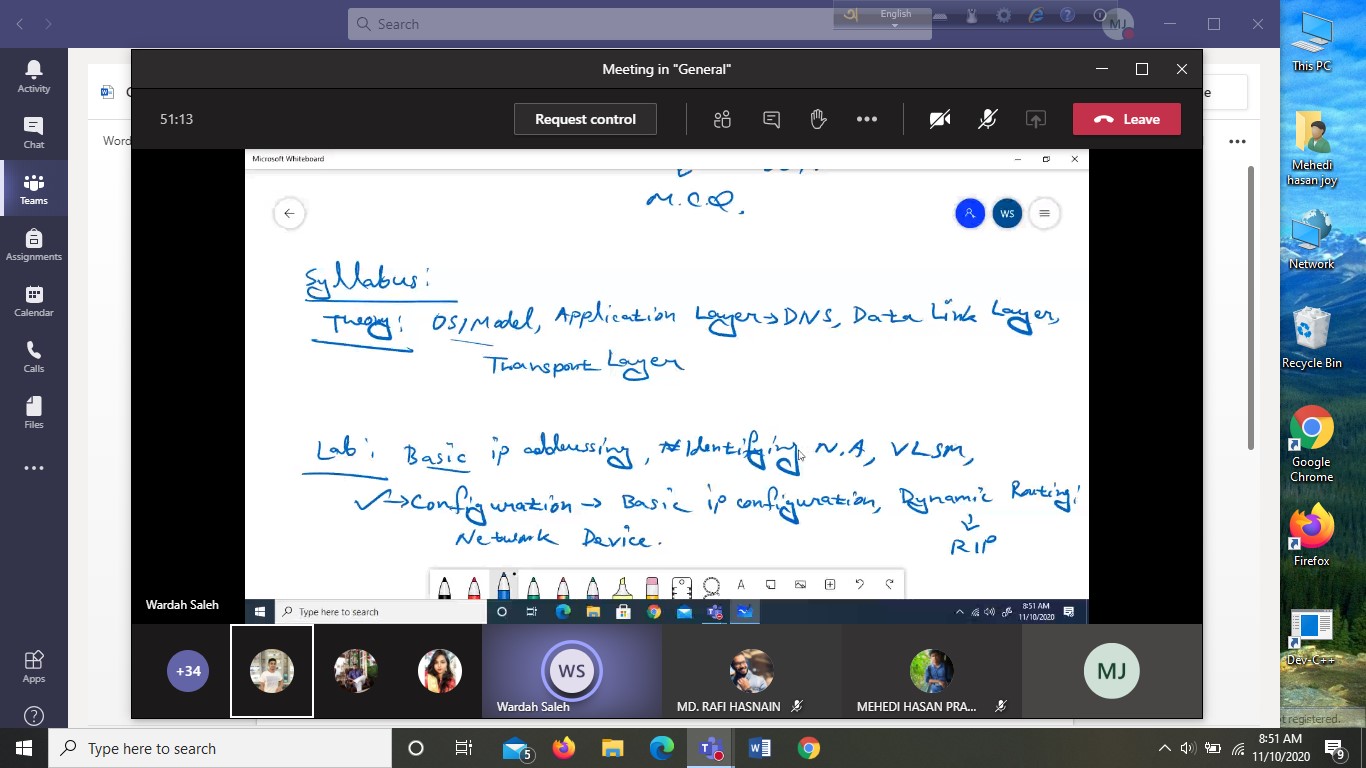 Search
English
MJ
This PC
Activity
Chat
Teams
Assignments
Calendar
Calls
Files
Apps
Word
Meeting in "General"
51:13
Request control
Leave
Microsoft Whiteboard
M.C.Q.
WS
Syllabus:
Theory: OSI Model, Application Layer → DNS, Data Link Layer,
Transport Layer
Lab: Basic ip addressing, Identifying N.A, VLSM,
✓→ Configuration → Basic ip configuration, Dynamic Routing:
Network Device.
↓
RIP
A
Wardah Saleh
Type here to search
8:51 AM
11/10/2020
+34
WS
Wardah Saleh
MD. RAFI HASNAIN
MEHEDI HASAN PRA...
MJ
Mehedi
hasan joy
Network
Recycle Bin
Google
Chrome
Firefox
Dev-C++
registered.
Type here to search
5
8:51 AM
11/10/2020
9